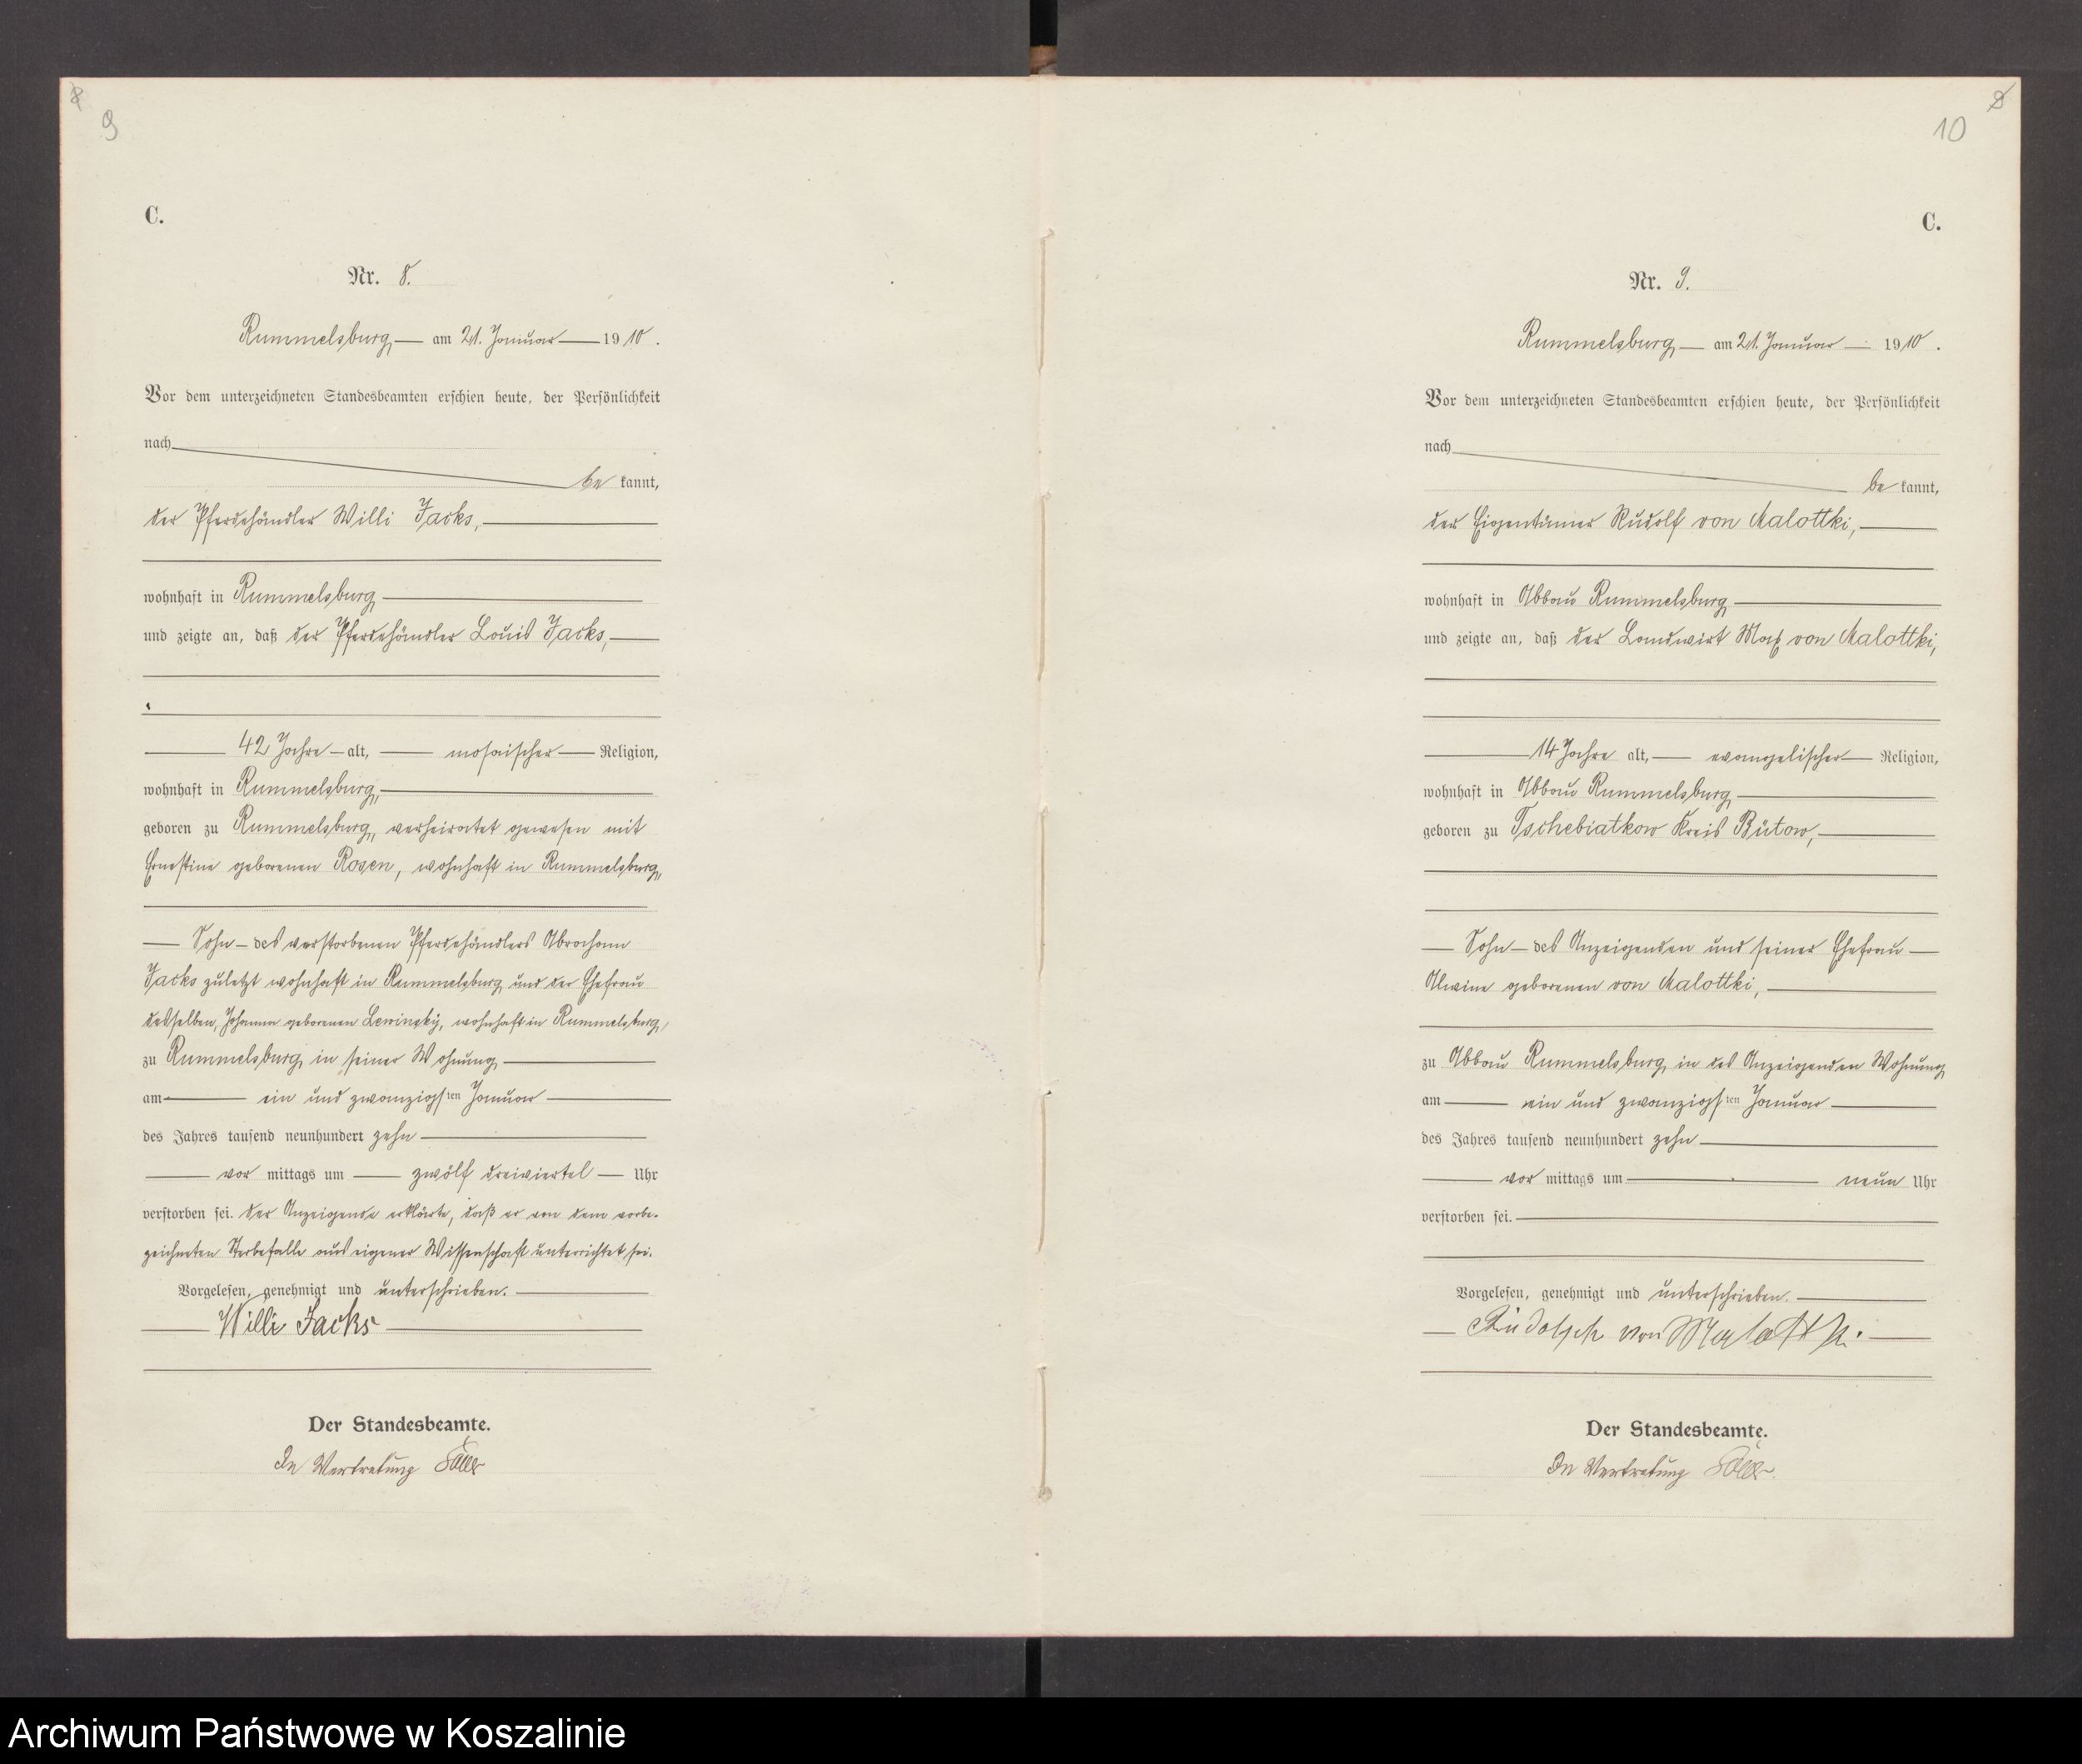 8
9
C.
Nr. 8.
Rummelsburg, am 21. Januar 1910.
Vor dem unterzeichneten Standesbeamten erschien heute, der Persönlichkeit
nach
be kannt,
der Pferdehändler Willi Jacks,
wohnhaft in Rummelsburg
und zeigte an, daß der Pferdehändler Louis Jacks,
42 Jahre alt, mosaischer Religion,
wohnhaft in Rummelsburg,
geboren zu Rummelsburg, verheiratet gewesen mit
Ernestine geborenen Rosen, wohnhaft in Rummelsburg,
Sohn des verstorbenen Pferdehändlers Abraham
Jacks zuletzt wohnhaft in Rummelsburg und der Ehefrau
desselben, Johanna geborenen Lewinsky, wohnhaft in Rummelsburg,
zu Rummelsburg, in seiner Wohnung,
am ein und zwanzigsten Januar
des Jahres tausend neunhundert zehn
vor mittags um zwölf dreiviertel Uhr
verstorben sei. Der Anzeigende erklärte, daß er von dem vorbe-
zeichneten Sterbefalle aus eigener Wissenschaft unterrichtet sei.
Vorgelesen, genehmigt und unterschrieben.
Willi Jacks
Der Standesbeamte.
In Vertretung
8
10
C.
Nr. 9.
Rummelsburg, am 21. Januar 1910.
Vor dem unterzeichneten Standesbeamten erschien heute, der Persönlichkeit
nach
be kannt,
der Eigentümer Rudolf von Malottki,
wohnhaft in Abbau Rummelsburg
und zeigte an, daß der Landwirt Max von Malottki,
14 Jahre alt, evangelischer Religion,
wohnhaft in Abbau Rummelsburg,
geboren zu Tschebiatkow Kreis Bütow,
Sohn des Anzeigenden und seiner Ehefrau
Alwine geborenen von Malottki,
zu Abbau Rummelsburg, in des Anzeigenden Wohnung
am ein und zwanzigsten Januar
des Jahres tausend neunhundert zehn
vor mittags um neun Uhr
verstorben sei.
Vorgelesen, genehmigt und unterschrieben.
Rudolph von Malottki.
Der Standesbeamte.
In Vertretung
Archiwum Państwowe w Koszalinie